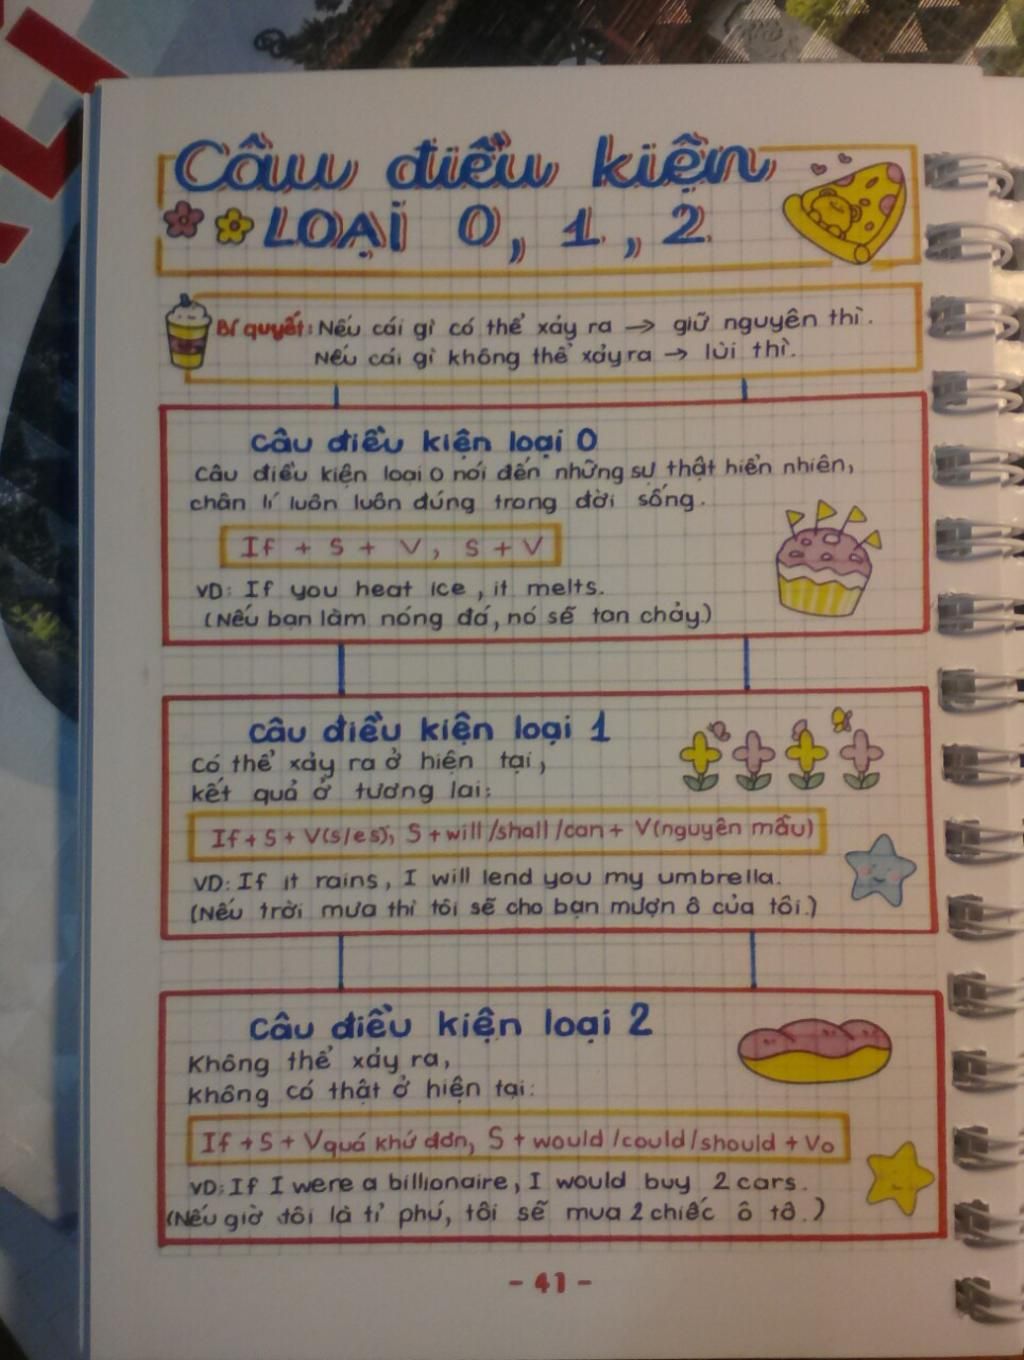 Câu điều kiện
LOẠI 0, 1, 2
Bí quyết: Nếu cái gì có thể xảy ra → giữ nguyên thì.
Nếu cái gì không thể xảy ra → lùi thì.
Câu điều kiện loại 0
Câu điều kiện loại 0 nói đến những sự thật hiển nhiên,
chân lí luôn luôn đúng trong đời sống.
If + S + V, S + V
VD: If you heat ice, it melts.
(Nếu bạn làm nóng đá, nó sẽ tan chảy.)
Câu điều kiện loại 1
Có thể xảy ra ở hiện tại,
kết quả ở tương lai:
If + S + V(s/es), S + will/shall/can + V(nguyên mẫu)
VD: If it rains, I will lend you my umbrella.
(Nếu trời mưa thì tôi sẽ cho bạn mượn ô của tôi.)
Câu điều kiện loại 2
Không thể xảy ra,
không có thật ở hiện tại:
If + S + Vquá khứ đơn, S + would/could/should + Vo
VD: If I were a billionaire, I would buy 2 cars.
(Nếu giờ tôi là tỉ phú, tôi sẽ mua 2 chiếc ô tô.)
- 41 -